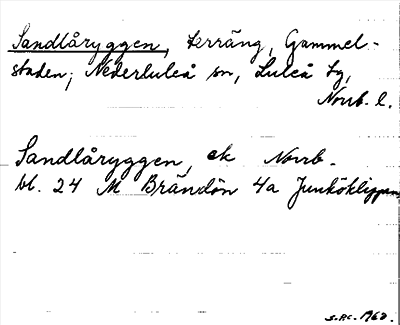 Sandlåryggen, terräng, Gammel-
staden; Nederluleå sn, Luleå tg,
Norrb. l.
Sandlåryggen, ek Norrb.
bl. 24 M Brändön 4a Junköklippan
1960.